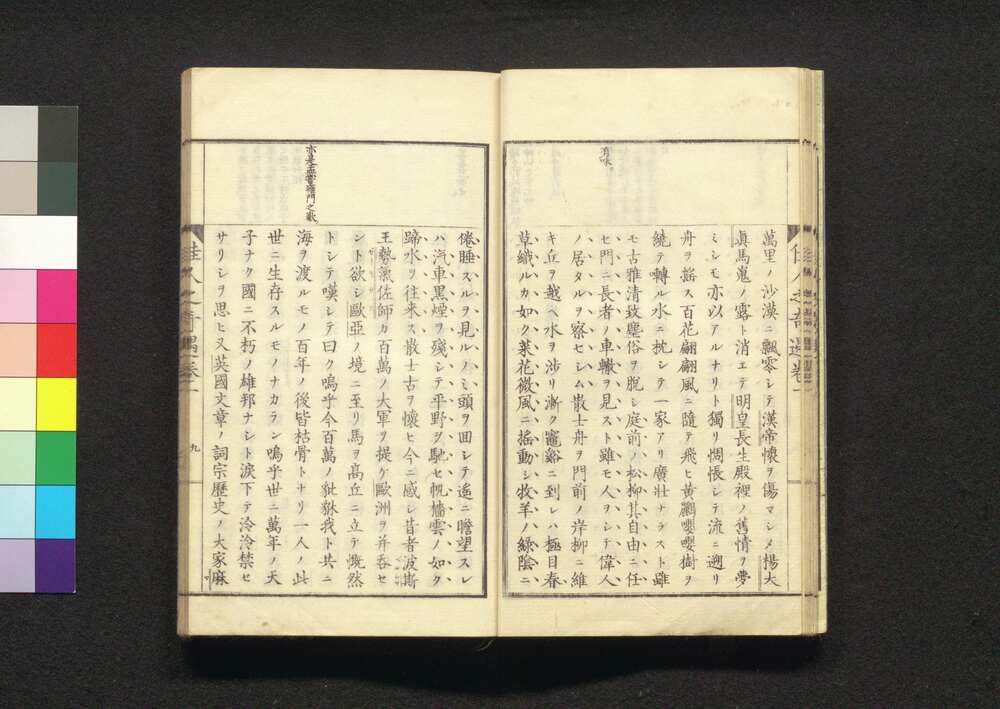 有味
萬里ノ沙漠ニ飄零シテ漢帝懷ヲ傷マシメ楊太
眞馬嵬ノ露ト消エテ明皇長生殿裡ノ舊情ヲ夢
ミシモ亦以アルナリト獨リ惆悵シテ流ニ遡リ
舟ヲ搖ス百花翩翩風ニ隨テ飛ヒ黃鸝嚶嚶樹ヲ
繞テ轉ル水ニ枕シテ一家アリ廣壯ナラスト雖
モ古雅清致塵俗ヲ脫シ庭前ノ松柳其自由ニ任
セ門ニ長者ノ車轍ヲ見スト雖モ人ヲシテ偉人
ノ居タルヲ察セシム散士舟ヲ門前ノ岸柳ニ維
キ丘ヲ越ヘ水ヲ涉リ漸ク竈谿ニ到レハ極目春
草織ルカ如ク菜花微風ニ搖動シ牧羊ノ綠陰ニ
佳人之奇遇卷一
亦是孟嘗雍門之歎
倦睡スルヲ見ルノミ頭ヲ回シテ遙ニ瞻望スレ
ハ汽車黑煙ヲ殘シテ平野ヲ馳セ帆檣雲ノ如ク
蹄水ヲ往來ス散士古ヲ懷ヒ今ニ感シ昔者波斯
王勢氣佐師カ百萬ノ大軍ヲ提ケ歐洲ヲ并呑セ
ント欲シ歐亞ノ境ニ至リ馬ヲ高丘ニ立テ慨然
トシテ嘆シテ曰ク嗚乎今百萬ノ貔貅我ト共ニ
海ヲ渡ルモノ百年ノ後皆枯骨トナリ一人ノ此
世ニ生存スルモノナカラン嗚乎世ニ萬年ノ天
子ナク國ニ不朽ノ雄邦ナシト淚下テ泠泠禁セ
サリシヲ思ヒ又英國文章ノ詞宗歷史ノ大家麻
佳人之奇遇卷一
九